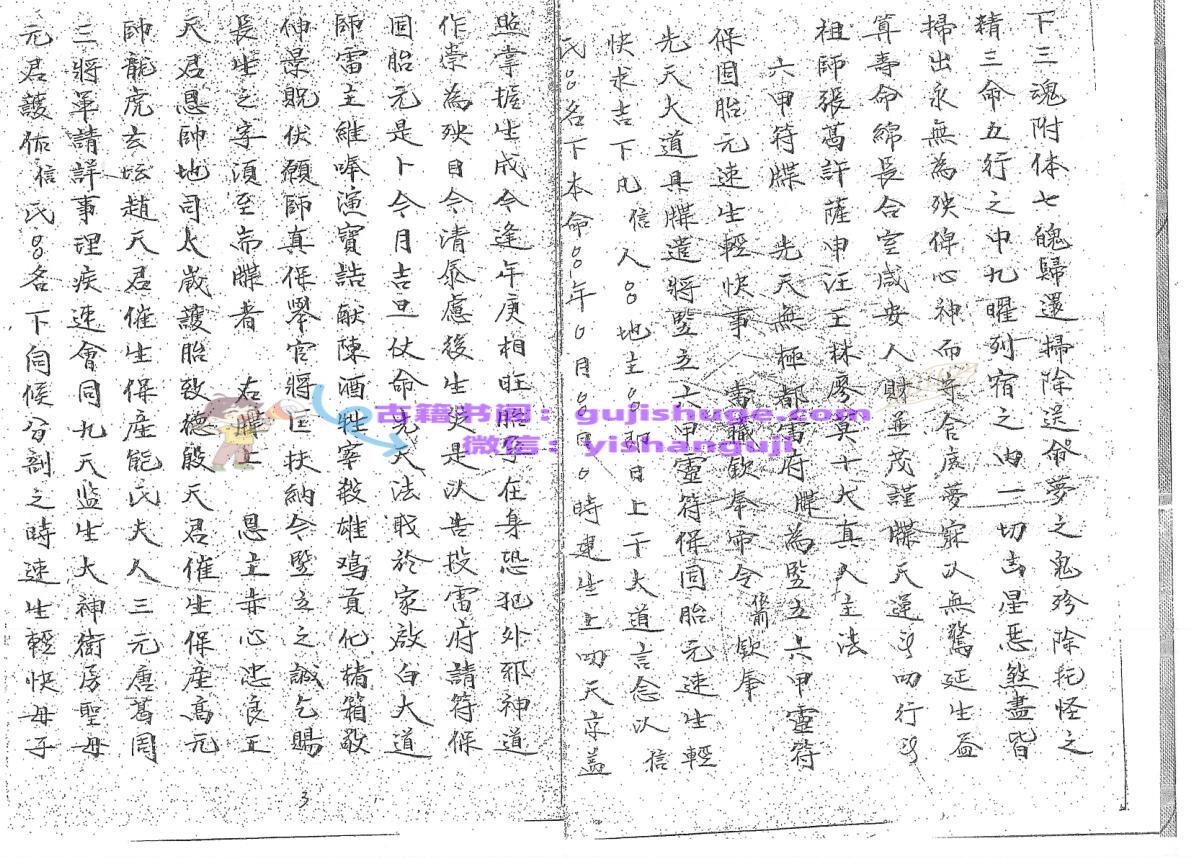 下三魂附体七魄歸還掃除送龠夢之鬼殄除託怪之
精三命五行之中九曜列宿之內一切吉星惡煞盡皆
掃出永無為殃俾心神而守合宜夢寐以無驚延生益
算壽命綿長合室咸安人財並茂謹牒天運 叩行
祖師張葛許薩申汪王林廖莫十大真人主法
六甲符牒 先天無極都雷府牒為豎立六甲靈符
保固胎元速生輕快事 當職欽奉帝令 欽奉
先天大道具牒遣將豎立六甲靈符保固胎元速生輕
快求吉下凡信人00地主00即日上干大道言念以信
氏00名下本命00年0月0日0時建生上叨天京蓋
照掌握生成今逢年庚相旺胎孕在身恐犯外邪神道
作祟為殃日今清泰慮後生災是以告投雷府請符保
固胎元是卜今月吉旦仗命先天法取於家啟白大道
師雷主維奉演寶誥献陳酒牲宰殺雄鴻貢化精箱敬
伸景貺伏願師真保舉官將匡扶納今豎立之誠乞賜
長生之字須至而牒者 右牒上 恩主赤心忠良王
天君恩帥地司太歲護胎致德殷天君催生保產高元
帥龍虎玄坛趙天君催生保產能氏夫人三元唐葛周
三將軍請詳事理疾速會同九天監生大神衛房聖母
元君護佑信氏00名下伺候分剖之時速生輕快母子
3
古籍书阁：gujishuge.com
微信：yishanguji